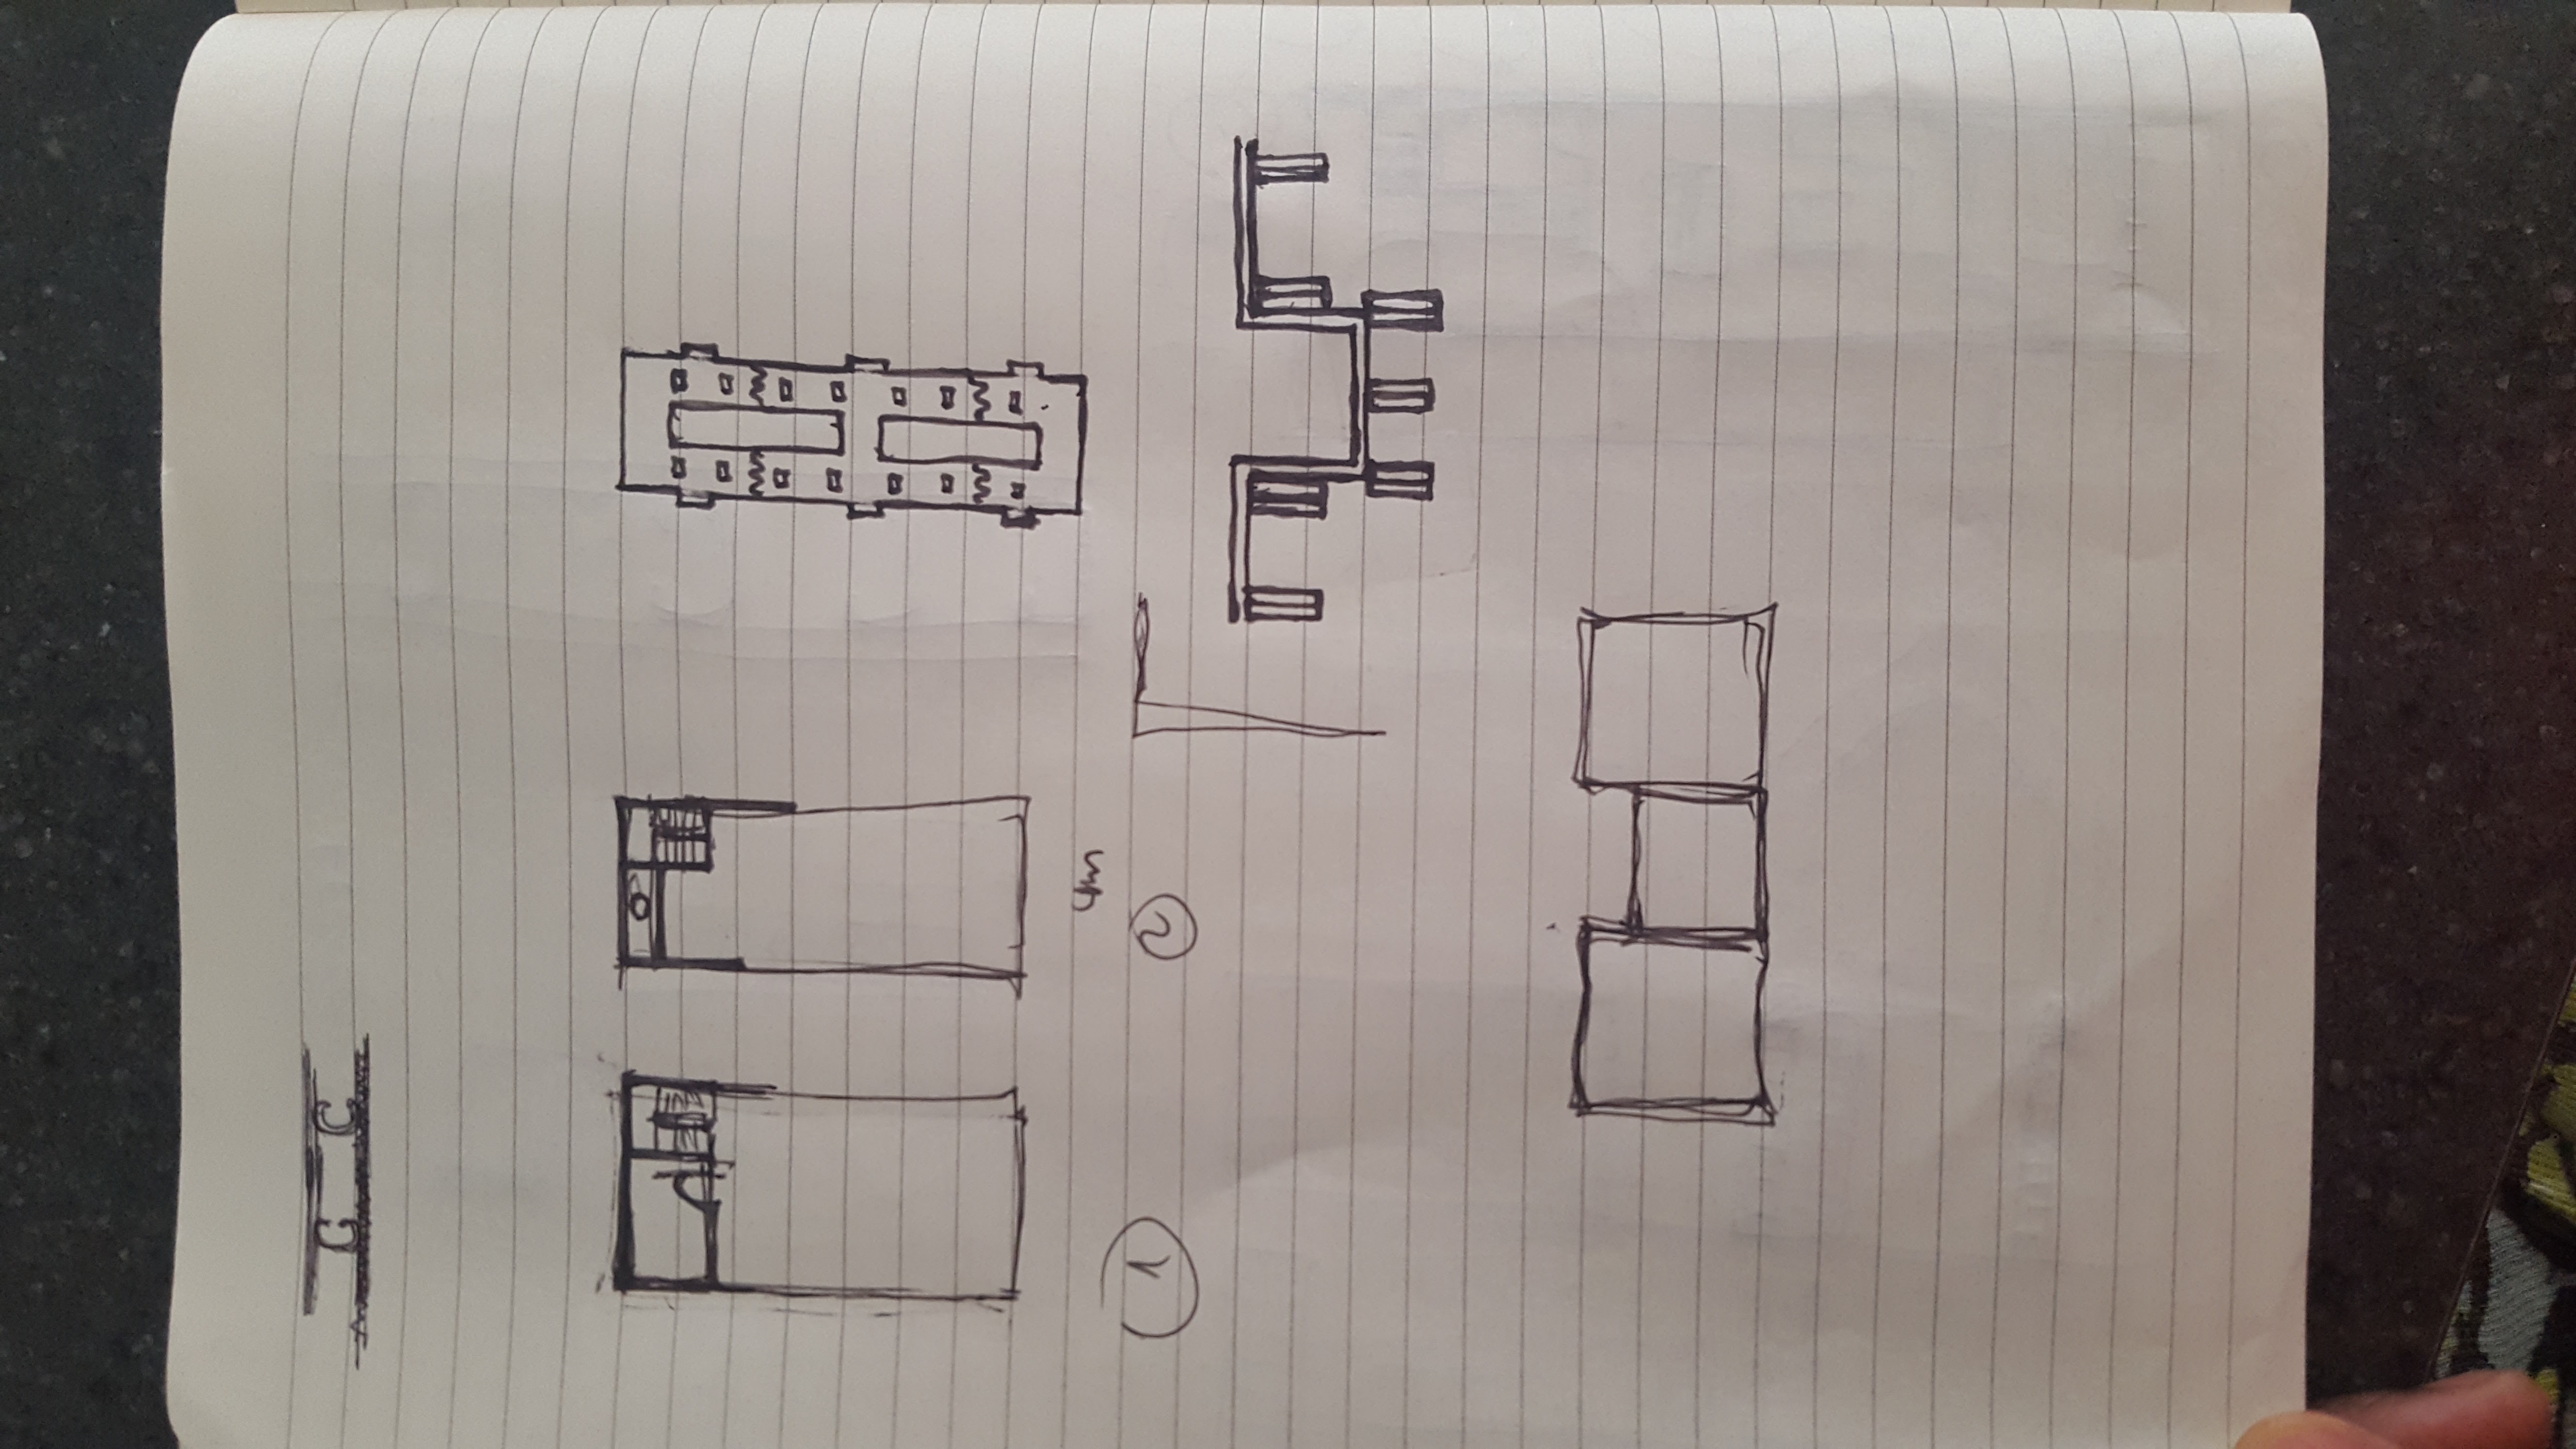 C C
4m
1
2